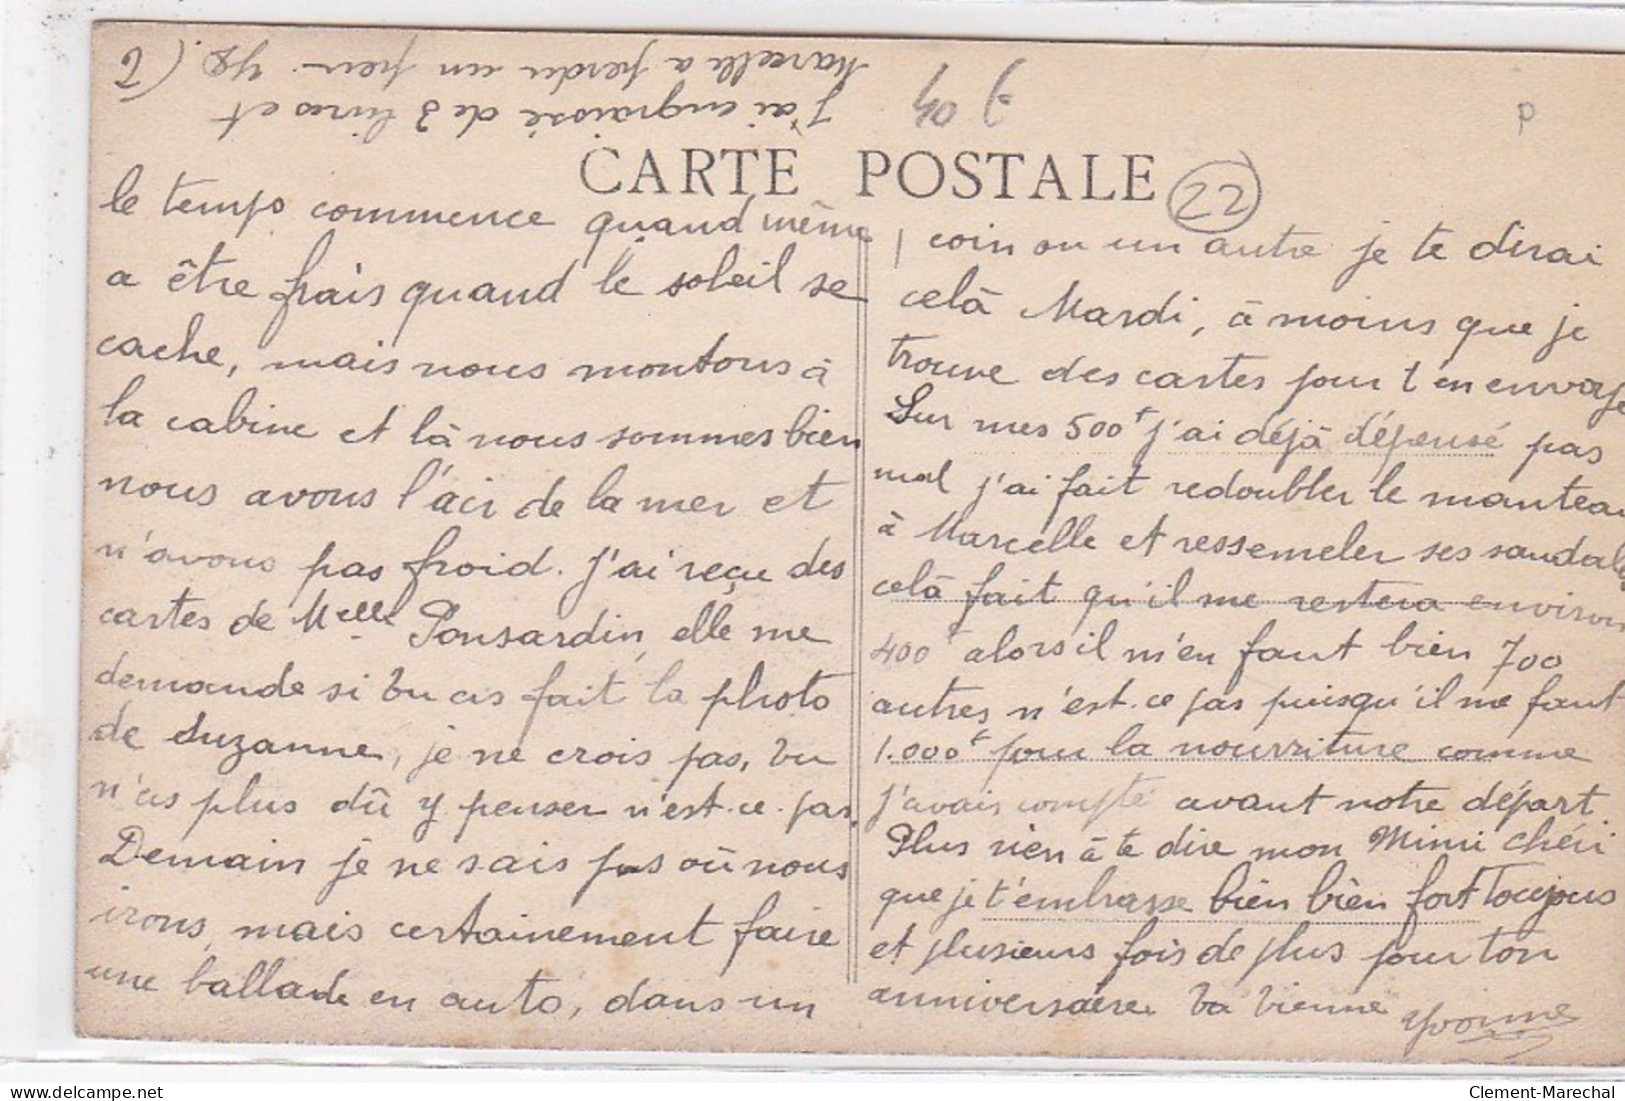 J'ai engraissé de 3 livres et
Marcelle a perdu un peu.
40 F
P
CARTE POSTALE
22
le temps commence quand même
a être frais quand le soleil se
cache, mais nous montons à
la cabine et là nous sommes bien
nous avons l'air de la mer et
n'avons pas froid. J'ai reçu des
cartes de Melle Ponsardin, elle me
demande si tu as fait la photo
de Suzanne, je ne crois pas, tu
n'as plus dû y penser n'est-ce-pas.
Demain je ne sais pas où nous
irons, mais certainement faire
une ballade en auto, dans un
coin ou un autre je te dirai
celà Mardi, à moins que je
trouve des cartes pour t'en envoye
Sur mes 500f j'ai déjà dépensé pas
mal j'ai fait redoubler le manteau
à Marcelle et ressemeler ses sandales
celà fait qu'il me restera environ
400f alors il m'en faut bien 700
autres n'est-ce pas puisqu'il me faut
1.000f pour la nourriture comme
j'avais compté avant notre départ
Plus rien à te dire mon Mimi chéri
que je t'embrasse bien bien fort Toujours
et plusieurs fois de plus pour ton
anniversaire ta tienne Yvonne
Clement-Marechal